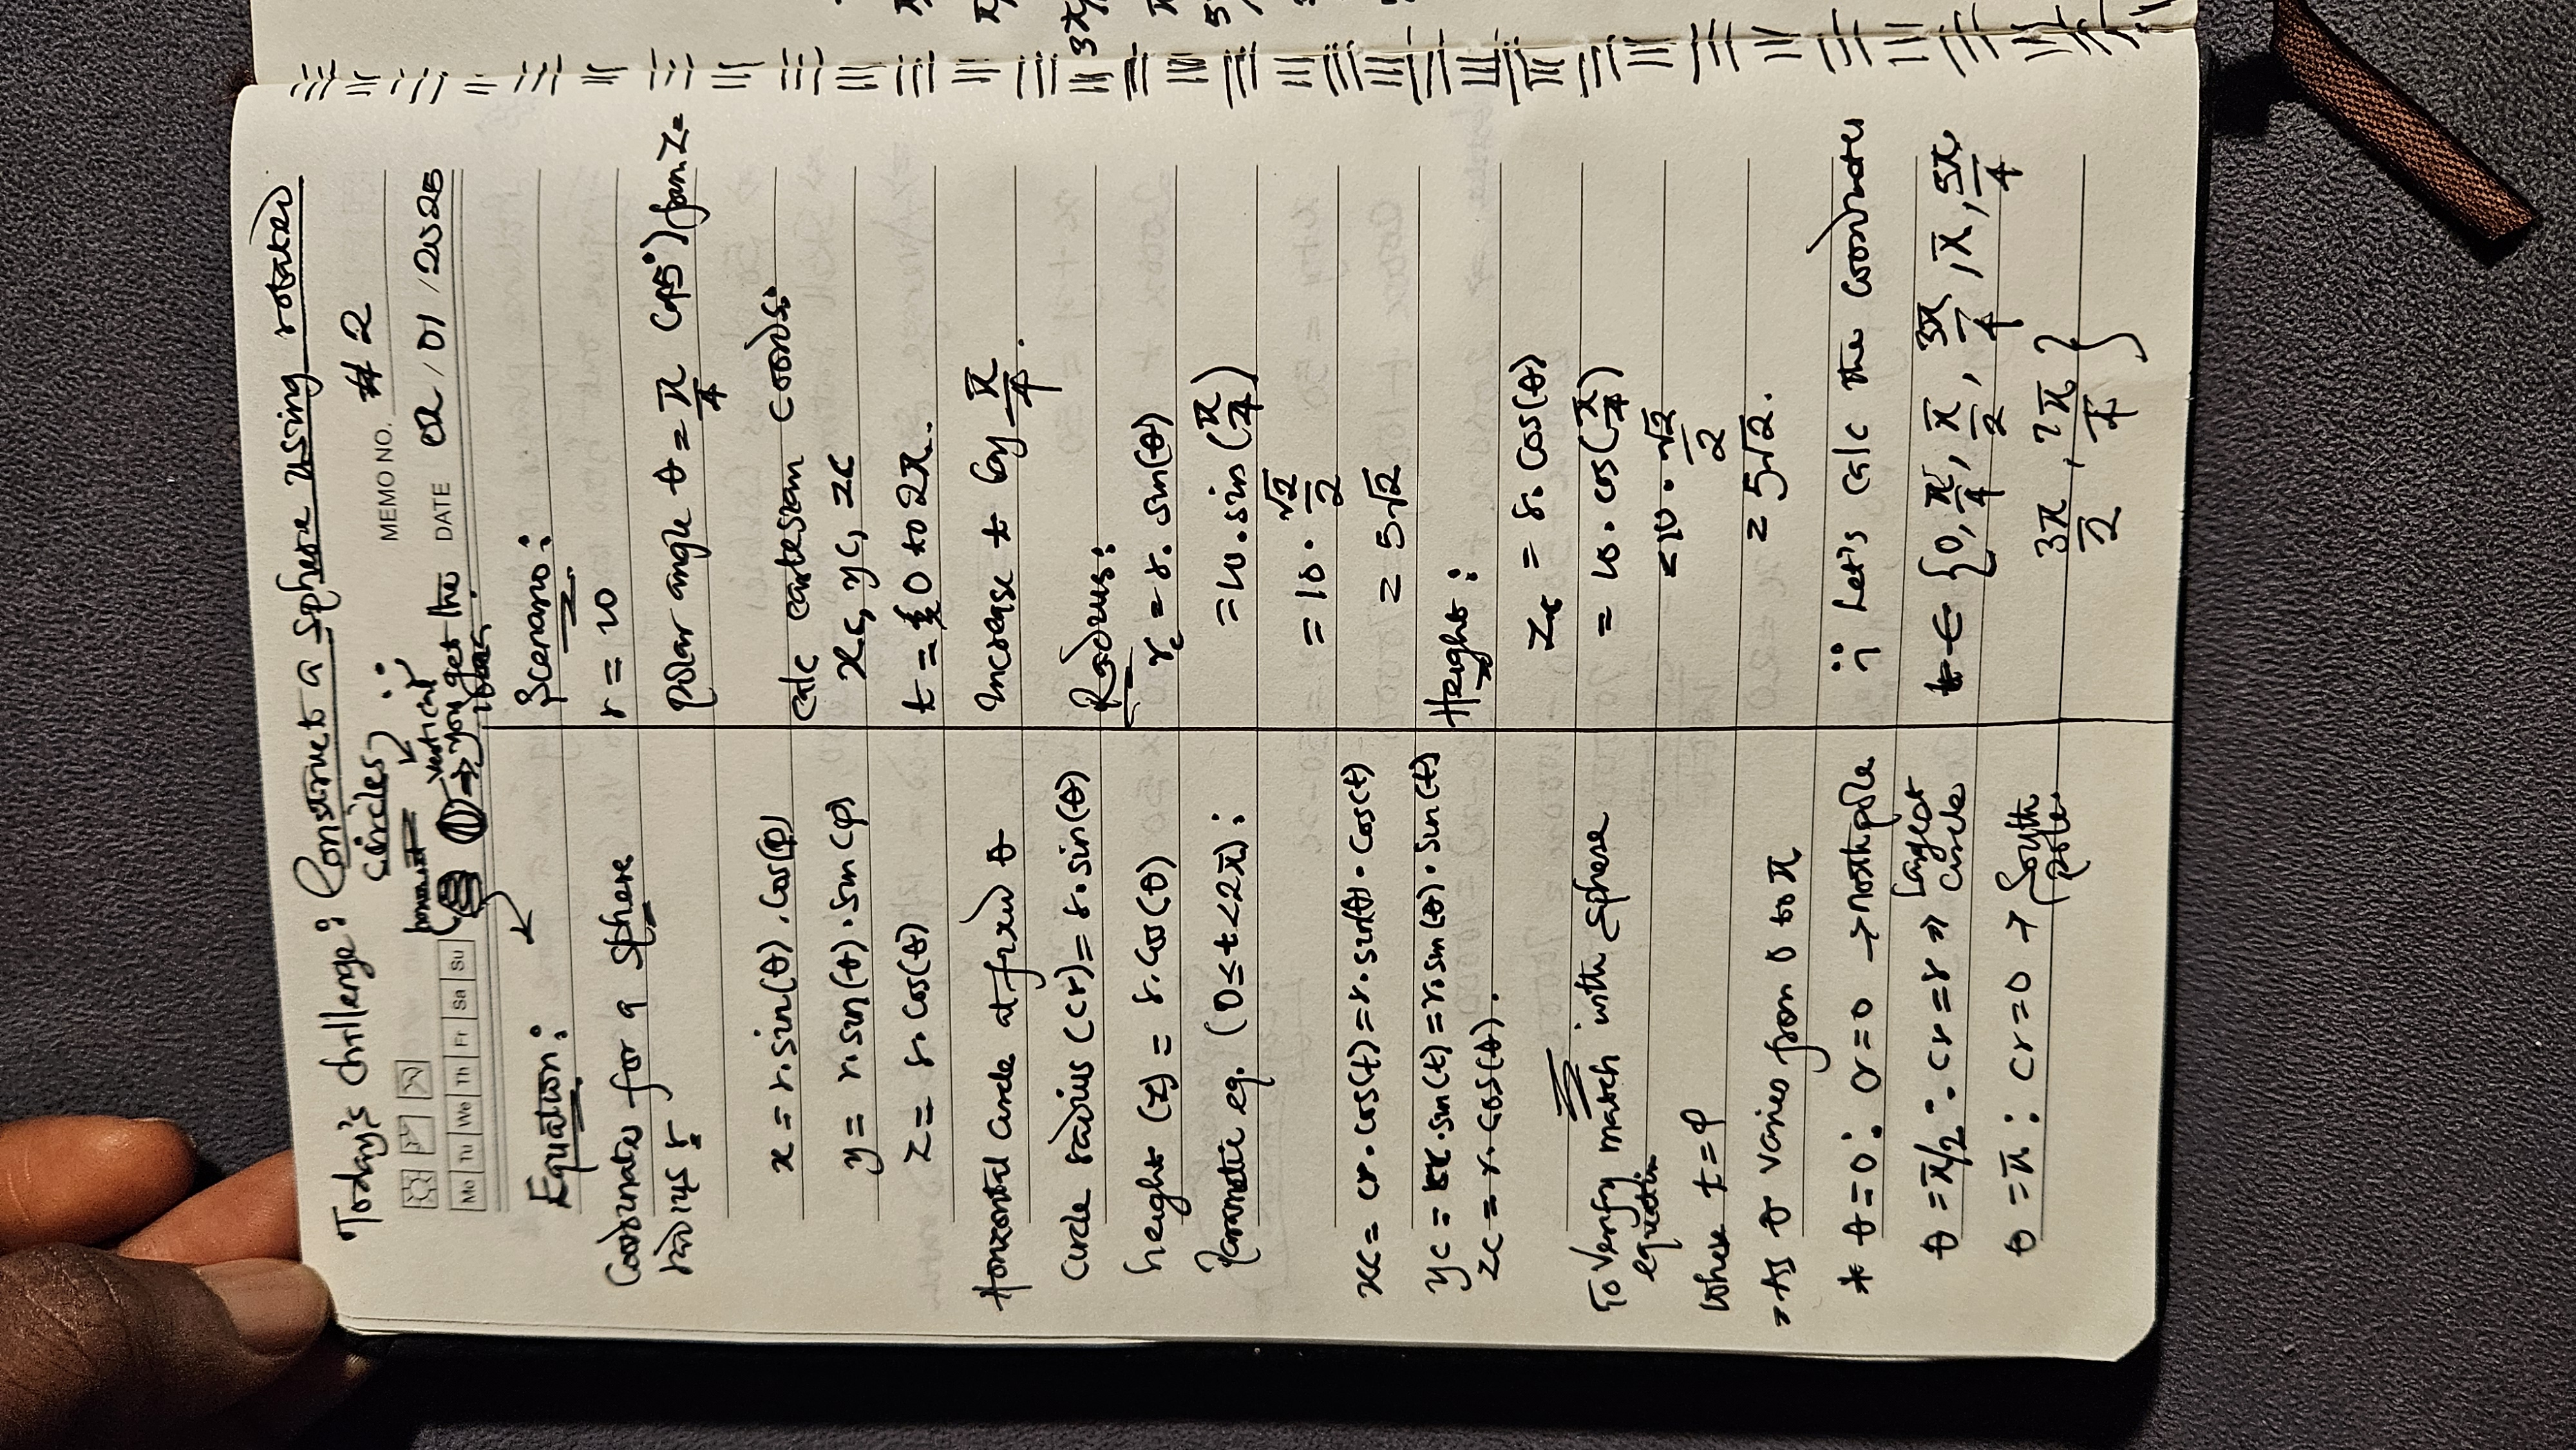 Today's challenge: Construct a sphere using rotated
circles
MEMO NO. # 2
horizontal
vertical
DATE 02/01/2025
Mo Tu We Th Fr Sa Su
⇒ you get the
idea.
Equation:
Coordinates for a sphere
radius r
x = r.sin(θ).cos(φ)
y = r.sin(θ).sin(φ)
z = r.cos(θ)
Horizontal circle at fixed θ
Circle radius (cr) = r.sin(θ)
height (z) = r.cos(θ)
Parametic eq. (0≤t<2π):
xc = cr.cos(t) = r.sin(θ).cos(t)
yc = cr.sin(t) = r.sin(θ).sin(t)
zc = r.cos(θ).
To verify match with sphere
equation
where t = φ
⇒ As θ varies from 0 to π
* θ=0: cr=0 → north pole
θ=π/2: cr=r ⇒ Largest
circle
θ=π: cr=0 → South
pole.
Scenario:
r = 10
polar angle θ = π/4 (45°) from z-
calc cartesian coords:
xc, yc, zc
t = 0 to 2π.
increase t by π/4.
Radius:
rc = r. sin(θ)
= 10.sin(π/4)
= 10 . √2/2
= 5√2
Height:
zc = r. cos(θ)
= 10. cos(π/4)
= 10 . √2/2
= 5√2.
Let's calc the coordinates
t ∈ {0, π/4, π/2, 3π/4, π, 5π/4
3π/2, 7π/4}
3π/
5